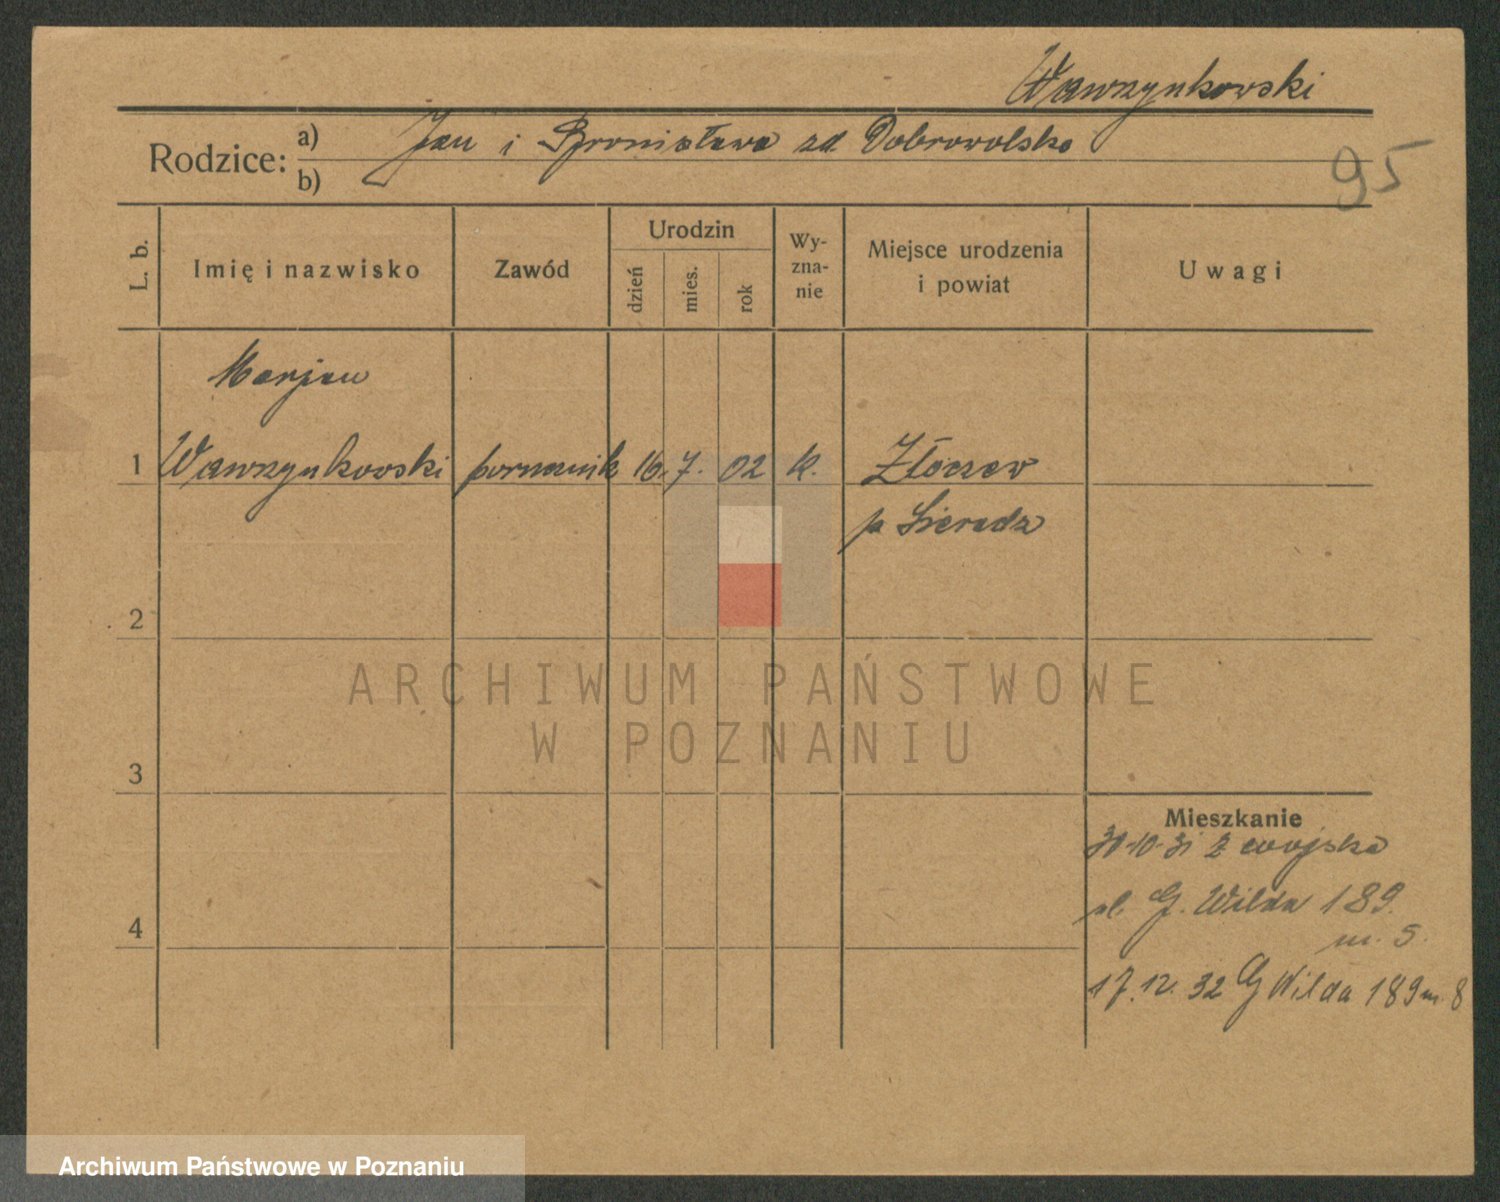 Wawrzynkowski
Rodzice: a) Jan i Bronisława zd. Dobrowolska
b)
95
L. b.
Imię i nazwisko
Zawód
Urodzin
dzień
mies.
rok
Wy-
zna-
nie
Miejsce urodzenia
i powiat
Uwagi
Marjan
1 Wawrzynkowski 16. 7. 02 k. Złoczew
p Sieradz
2
3
4
Mieszkanie
30.10.31 z wojska
ul. G. Wilda 189.
m. 5.
17.12.32 G Wilda 189 m. 8
ARCHIWUM PAŃSTWOWE
W POZNANIU
Archiwum Państwowe w Poznaniu